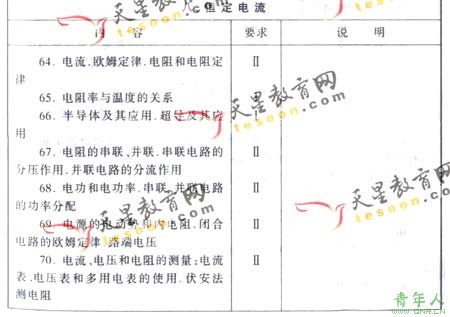 恒定电流
内 容 要求 说 明
64. 电流.欧姆定律.电阻和电阻定 Ⅱ
律
65. 电阻率与温度的关系
66. 半导体及其应用.超导及其应
用
67. 电阻的串联、并联.串联电路的 Ⅱ
分压作用.并联电路的分流作用
68. 电功和电功率.串联、并联电路 Ⅱ
的功率分配
69. 电源的电动势和内电阻.闭合 Ⅱ
电路的欧姆定律.路端电压
70. 电流、电压和电阻的测量:电流 Ⅱ
表、电压表和多用电表的使用.伏安法
测电阻
天星教育网
tesoon.com
天星教育网
tesoon.com
天星教育网
tesoon.com
青年人